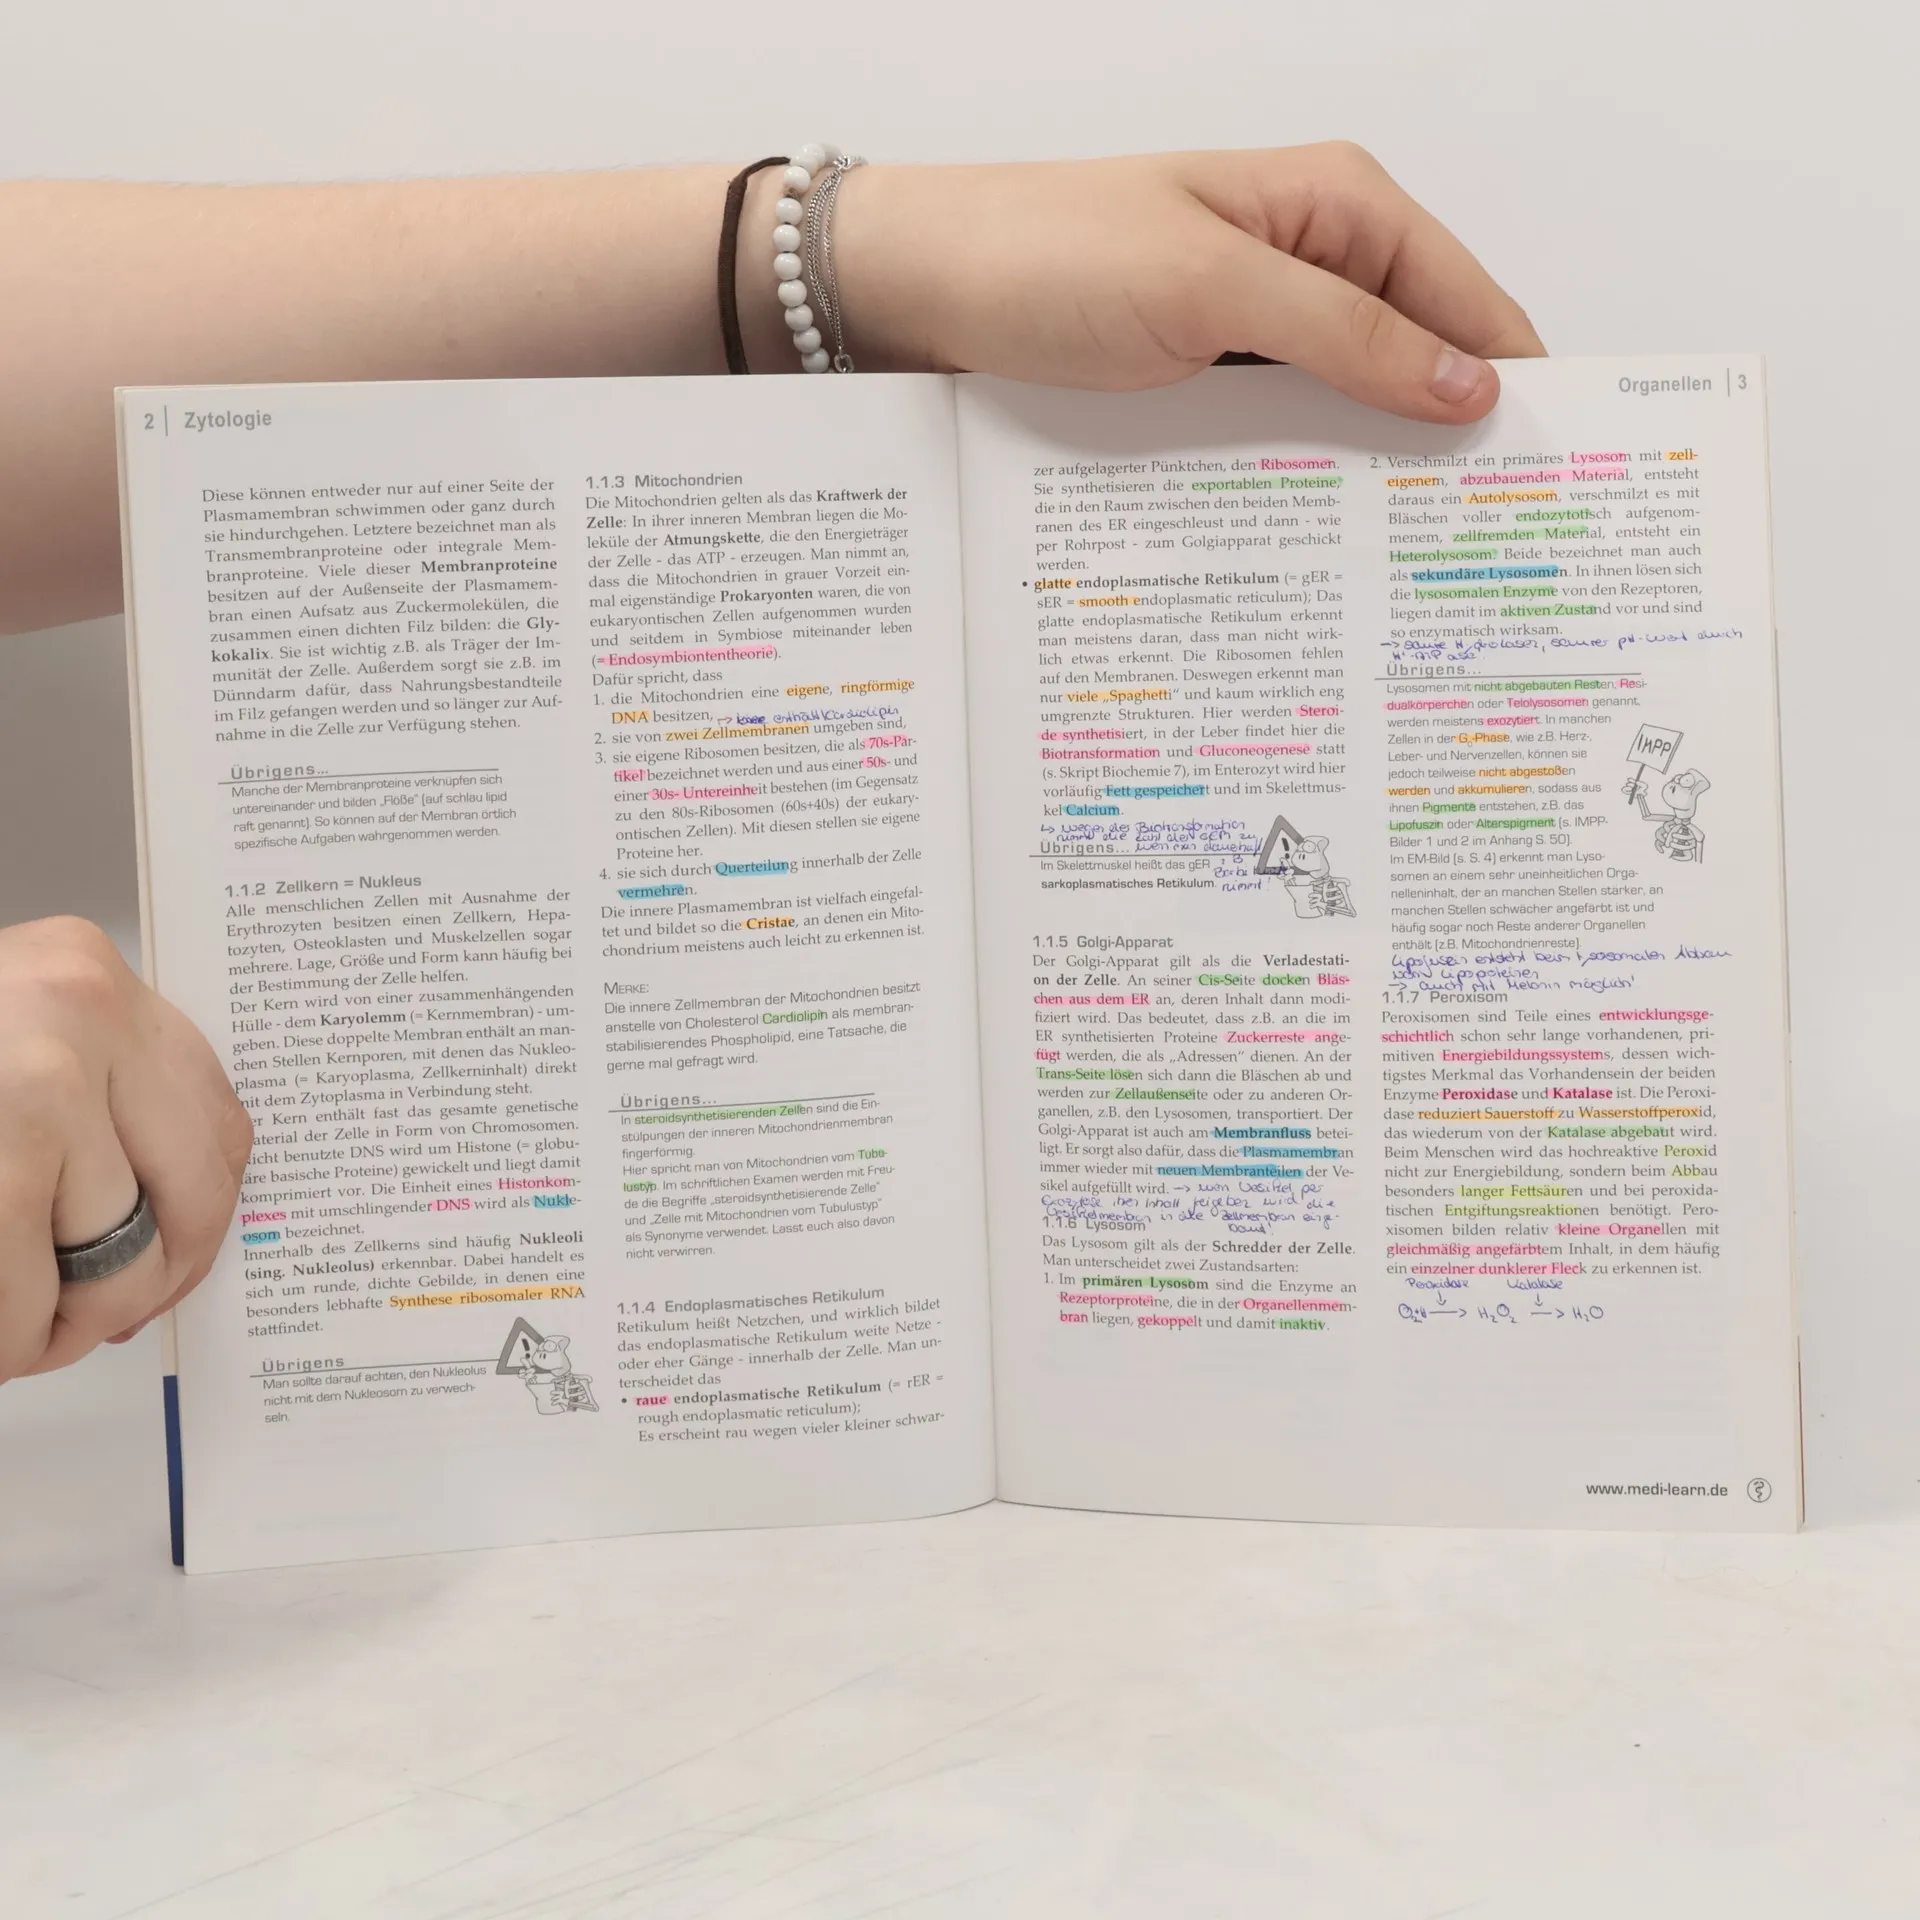 2 | Zytologie
Diese können entweder nur auf einer Seite der
Plasmamembran schwimmen oder ganz durch
sie hindurchgehen. Letztere bezeichnet man als
Transmembranproteine oder integrale Mem-
branproteine. Viele dieser Membranproteine
besitzen auf der Außenseite der Plasmamem-
bran einen Aufsatz aus Zuckermolekülen, die
zusammen einen dichten Filz bilden: die Gly-
kokalix. Sie ist wichtig z.B. als Träger der Im-
munität der Zelle. Außerdem sorgt sie z.B. im
Dünndarm dafür, dass Nahrungsbestandteile
im Filz gefangen werden und so länger zur Auf-
nahme in die Zelle zur Verfügung stehen.
Übrigens...
Manche der Membranproteine verknüpfen sich
untereinander und bilden „Flöße" (auf schlau lipid
raft genannt). So können auf der Membran örtlich
spezifische Aufgaben wahrgenommen werden.
1.1.2 Zellkern = Nukleus
Alle menschlichen Zellen mit Ausnahme der
Erythrozyten besitzen einen Zellkern, Hepa-
tozyten, Osteoklasten und Muskelzellen sogar
mehrere. Lage, Größe und Form kann häufig bei
der Bestimmung der Zelle helfen.
Der Kern wird von einer zusammenhängenden
Hülle - dem Karyolemm (= Kernmembran) - um-
geben. Diese doppelte Membran enthält an man-
chen Stellen Kernporen, mit denen das Nukleo-
plasma (= Karyoplasma, Zellkerninhalt) direkt
mit dem Zytoplasma in Verbindung steht.
er Kern enthält fast das gesamte genetische
aterial der Zelle in Form von Chromosomen.
icht benutzte DNS wird um Histone (= globu-
äre basische Proteine) gewickelt und liegt damit
komprimiert vor. Die Einheit eines Histonkom-
plexes mit umschlingender DNS wird als Nukle-
osom bezeichnet.
Innerhalb des Zellkerns sind häufig Nukleoli
(sing. Nukleolus) erkennbar. Dabei handelt es
sich um runde, dichte Gebilde, in denen eine
besonders lebhafte Synthese ribosomaler RNA
stattfindet.
Übrigens
Man sollte darauf achten, den Nukleolus
nicht mit dem Nukleosom zu verwech-
seln.
1.1.3 Mitochondrien
Die Mitochondrien gelten als das Kraftwerk der
Zelle: In ihrer inneren Membran liegen die Mo-
leküle der Atmungskette, die den Energieträger
der Zelle - das ATP - erzeugen. Man nimmt an,
dass die Mitochondrien in grauer Vorzeit ein-
mal eigenständige Prokaryonten waren, die von
eukaryontischen Zellen aufgenommen wurden
und seitdem in Symbiose miteinander leben
(= Endosymbiontentheorie).
Dafür spricht, dass
1. die Mitochondrien eine eigene, ringförmige
DNA besitzen, → enthält Cardiolipin
2. sie von zwei Zellmembranen umgeben sind,
3. sie eigene Ribosomen besitzen, die als 70s-Par-
tikel bezeichnet werden und aus einer 50s- und
einer 30s- Untereinheit bestehen (im Gegensatz
zu den 80s-Ribosomen (60s+40s) der eukary-
ontischen Zellen). Mit diesen stellen sie eigene
Proteine her.
4. sie sich durch Querteilung innerhalb der Zelle
vermehren.
Die innere Plasmamembran ist vielfach eingefal-
tet und bildet so die Cristae, an denen ein Mito-
chondrium meistens auch leicht zu erkennen ist.
MERKE:
Die innere Zellmembran der Mitochondrien besitzt
anstelle von Cholesterol Cardiolipin als membran-
stabilisierendes Phospholipid, eine Tatsache, die
gerne mal gefragt wird.
Übrigens...
In steroidsynthetisierenden Zellen sind die Ein-
stülpungen der inneren Mitochondrienmembran
fingerförmig.
Hier spricht man von Mitochondrien vom Tubu-
lustyp. Im schriftlichen Examen werden mit Freu-
de die Begriffe „steroidsynthetisierende Zelle"
und „Zelle mit Mitochondrien vom Tubulustyp"
als Synonyme verwendet. Lasst euch also davon
nicht verwirren.
1.1.4 Endoplasmatisches Retikulum
Retikulum heißt Netzchen, und wirklich bildet
das endoplasmatische Retikulum weite Netze -
oder eher Gänge - innerhalb der Zelle. Man un-
terscheidet das
• raue endoplasmatische Retikulum (= rER =
rough endoplasmatic reticulum);
Es erscheint rau wegen vieler kleiner schwar-
Organellen | 3
zer aufgelagerter Pünktchen, den Ribosomen.
Sie synthetisieren die exportablen Proteine,
die in den Raum zwischen den beiden Memb-
ranen des ER eingeschleust und dann - wie
per Rohrpost - zum Golgiapparat geschickt
werden.
• glatte endoplasmatische Retikulum (= gER =
sER = smooth endoplasmatic reticulum); Das
glatte endoplasmatische Retikulum erkennt
man meistens daran, dass man nicht wirk-
lich etwas erkennt. Die Ribosomen fehlen
auf den Membranen. Deswegen erkennt man
nur viele „Spaghetti" und kaum wirklich eng
umgrenzte Strukturen. Hier werden Steroi-
de synthetisiert, in der Leber findet hier die
Biotransformation und Gluconeogenese statt
(s. Skript Biochemie 7), im Enterozyt wird hier
vorläufig Fett gespeichert und im Skelettmus-
kel Calcium.
↳ wegen der Biotransformation
nimmt die Zahl des gER zu,
Übrigens... wenn man dauerhaft
Im Skelettmuskel heißt das gER z.B.
sarkoplasmatisches Retikulum. nimmt!
1.1.5 Golgi-Apparat
Der Golgi-Apparat gilt als die Verladestati-
on der Zelle. An seiner Cis-Seite docken Bläs-
chen aus dem ER an, deren Inhalt dann modi-
fiziert wird. Das bedeutet, dass z.B. an die im
ER synthetisierten Proteine Zuckerreste ange-
fügt werden, die als „Adressen" dienen. An der
Trans-Seite lösen sich dann die Bläschen ab und
werden zur Zellaußenseite oder zu anderen Or-
ganellen, z.B. den Lysosomen, transportiert. Der
Golgi-Apparat ist auch am Membranfluss betei-
ligt. Er sorgt also dafür, dass die Plasmamembran
immer wieder mit neuen Membranteilen der Ve-
sikel aufgefüllt wird. → wenn Vesikel per
Exozytose ihren Inhalt freigeben wird die
Vesikelmembran in die Zellmembran einge-
baut!
1.1.6 Lysosom
Das Lysosom gilt als der Schredder der Zelle.
Man unterscheidet zwei Zustandsarten:
1. Im primären Lysosom sind die Enzyme an
Rezeptorproteine, die in der Organellenmem-
bran liegen, gekoppelt und damit inaktiv.
2. Verschmilzt ein primäres Lysosom mit zell-
eigenem, abzubauenden Material, entsteht
daraus ein Autolysosom, verschmilzt es mit
Bläschen voller endozytotisch aufgenom-
menem, zellfremden Material, entsteht ein
Heterolysosom. Beide bezeichnet man auch
als sekundäre Lysosomen. In ihnen lösen sich
die lysosomalen Enzyme von den Rezeptoren,
liegen damit im aktiven Zustand vor und sind
so enzymatisch wirksam.
→ saure Hydrolasen, saurer pH-Wert durch
H⁺-ATPase.
Übrigens...
Lysosomen mit nicht abgebauten Resten, Resi-
dualkörperchen oder Telolysosomen genannt,
werden meistens exozytiert. In manchen
Zellen in der G₀-Phase, wie z.B. Herz-,
Leber- und Nervenzellen, können sie
jedoch teilweise nicht abgestoßen
werden und akkumulieren, sodass aus
ihnen Pigmente entstehen, z.B. das
Lipofuszin oder Alterspigment (s. IMPP-
Bilder 1 und 2 im Anhang S. 50).
Im EM-Bild (s. S. 4) erkennt man Lyso-
somen an einem sehr uneinheitlichen Orga-
nelleninhalt, der an manchen Stellen stärker, an
manchen Stellen schwächer angefärbt ist und
häufig sogar noch Reste anderer Organellen
enthält (z.B. Mitochondrienreste).
IMPP
Lipofuszin entsteht beim lysosomalen Abbau
von Lipoproteinen
→ auch mit Melanin möglich!
1.1.7 Peroxisom
Peroxisomen sind Teile eines entwicklungsge-
schichtlich schon sehr lange vorhandenen, pri-
mitiven Energiebildungssystems, dessen wich-
tigstes Merkmal das Vorhandensein der beiden
Enzyme Peroxidase und Katalase ist. Die Peroxi-
dase reduziert Sauerstoff zu Wasserstoffperoxid,
das wiederum von der Katalase abgebaut wird.
Beim Menschen wird das hochreaktive Peroxid
nicht zur Energiebildung, sondern beim Abbau
besonders langer Fettsäuren und bei peroxida-
tischen Entgiftungsreaktionen benötigt. Pero-
xisomen bilden relativ kleine Organellen mit
gleichmäßig angefärbtem Inhalt, in dem häufig
ein einzelner dunklerer Fleck zu erkennen ist.
Peroxidase Katalase
→ H₂O₂ → H₂O
www.medi-learn.de